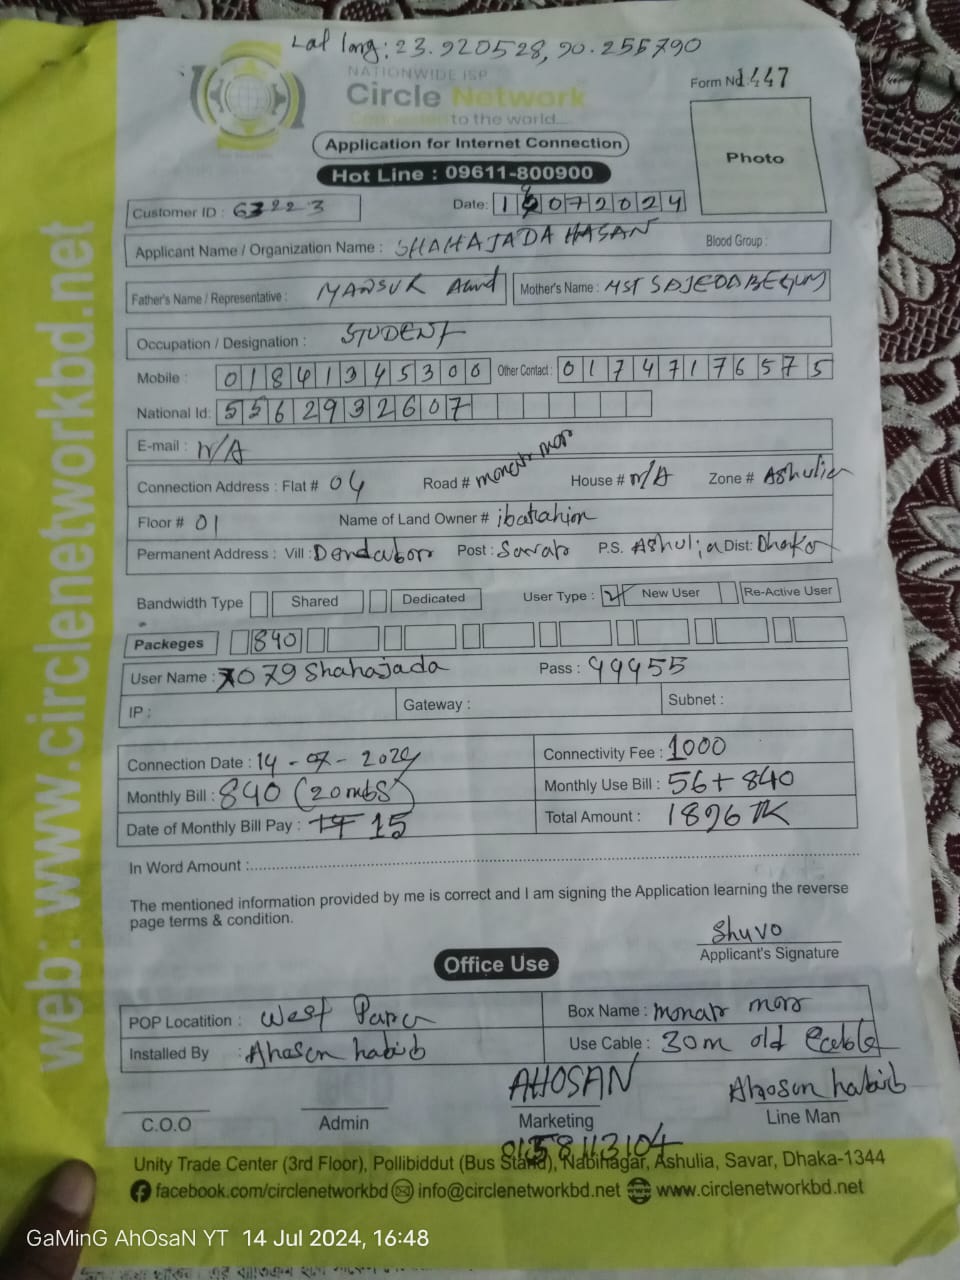 Lat long: 23.920528, 90.255790
NATIONWIDE ISP
Circle Network
to the world....
Form No 1447
Application for Internet Connection
Photo
Hot Line : 09611-800900
Customer ID : 63223
Date: 14072024
Applicant Name / Organization Name : SHAHAJADA HASAN Blood Group :
Father's Name / Representative : MANSUR Mother's Name : MST SAJEDA BEGUM
Occupation / Designation : STUDENT
Mobile : 01841345300 Other Contact : 01747176575
National Id: 5562932607
E-mail : N/A
Connection Address : Flat # 04 Road # monatr mor House # N/A Zone # Ashulia
Floor # 01 Name of Land Owner # ibatahim
Permanent Address : Vill : Dendabor Post : Savar P.S. Ashulia Dist: Dhaka
Bandwidth Type Shared Dedicated User Type : New User Re-Active User
Packeges 840
User Name : 7079 Shahajada Pass : 99955
IP : Gateway : Subnet :
Connection Date : 14-07-2024 Connectivity Fee : 1000
Monthly Bill : 840 (20mbS) Monthly Use Bill : 56+840
Date of Monthly Bill Pay : 15 Total Amount : 1896 TK
In Word Amount :
The mentioned information provided by me is correct and I am signing the Application learning the reverse
page terms & condition.
Shuvo
Applicant's Signature
Office Use
POP Locatition : West Para Box Name : monatr mor
Installed By : Ahosan habib Use Cable : 30m old
AHOSAN Ahosan habib
C.O.O Admin Marketing Line Man
Unity Trade Center (3rd Floor), Pollibiddut (Bus Stand), Nabinagar, Ashulia, Savar, Dhaka-1344
facebook.com/circlenetworkbd info@circlenetworkbd.net www.circlenetworkbd.net
web: www.circlenetworkbd.net
GaMinG AhOsaN YT 14 Jul 2024, 16:48